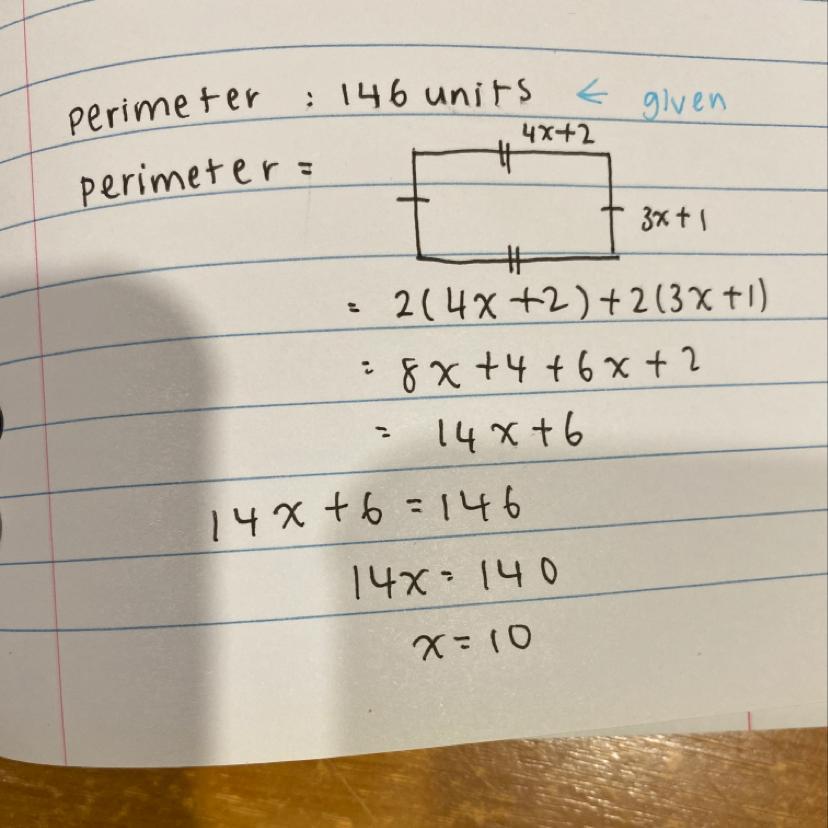 perimeter : 146 units ← given
perimeter =
4x+2
3x+1
= 2(4x+2)+2(3x+1)
= 8x+4+6x+2
= 14x+6
14x+6=146
14x=140
x=10